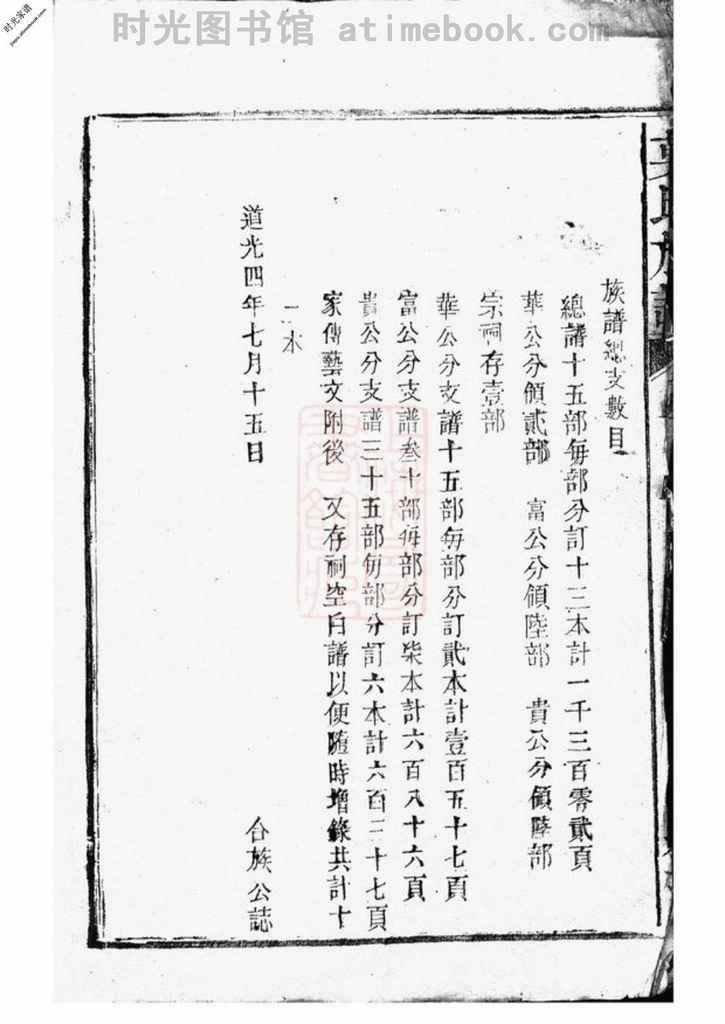 时光图书馆 atimebook.com
时光家谱
族譜總支數目
總譜十五部每部分訂十三本計一千三百零貳頁
華公分領貳部 富公分領陸部 貴公分領陸部
宗祠存壹部
華公分支譜十五部每部分訂貳本計壹百五十七頁
富公分支譜叁十部每部分訂柒本計六百八十六頁
貴公分支譜三十五部每部分訂六本計六百三十七頁
家傳藝文附後 又存祠空白譜以便隨時增錄共計十
一本
道光四年七月十五日
合族公誌